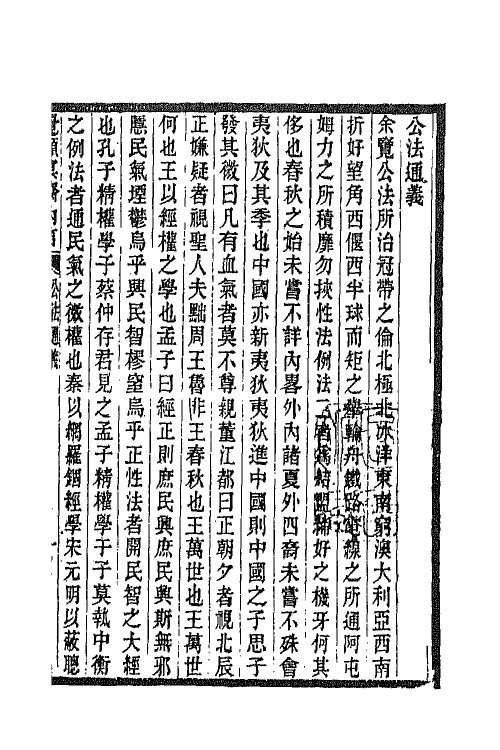 公法通義
余覽公法所治冠帶之倫北極北冰洋東南窮澳大利亞西南
折好望角西偃西半球而矩之輪舟鐵路電線之所通阿屯
姆力之所積靡勿挾性法例法二者爲結盟歸好之機牙何其
侈也春秋之始未嘗不詳內畧外內諸夏外四裔未嘗不硃會
夷狄及其季也中國亦新夷狄夷狄進中國則中國之子思子
發其微曰凡有血氣者莫不尊親董江都曰正朝夕者視北辰
正嫌疑者視聖人夫黜周王魯非王春秋也王萬世也王萬世
何也王以經權之學也孟子曰經正則庶民興庶民興斯無邪
慝民氣堙鬱烏乎興民智樛窒烏乎正性法者開民智之大經
也孔子精權學于蔡仲存君見之孟子精權學于子莫執中衡
之例法者通民氣之微權也秦以網羅錮經學宋元明以蔽聰
公法通義